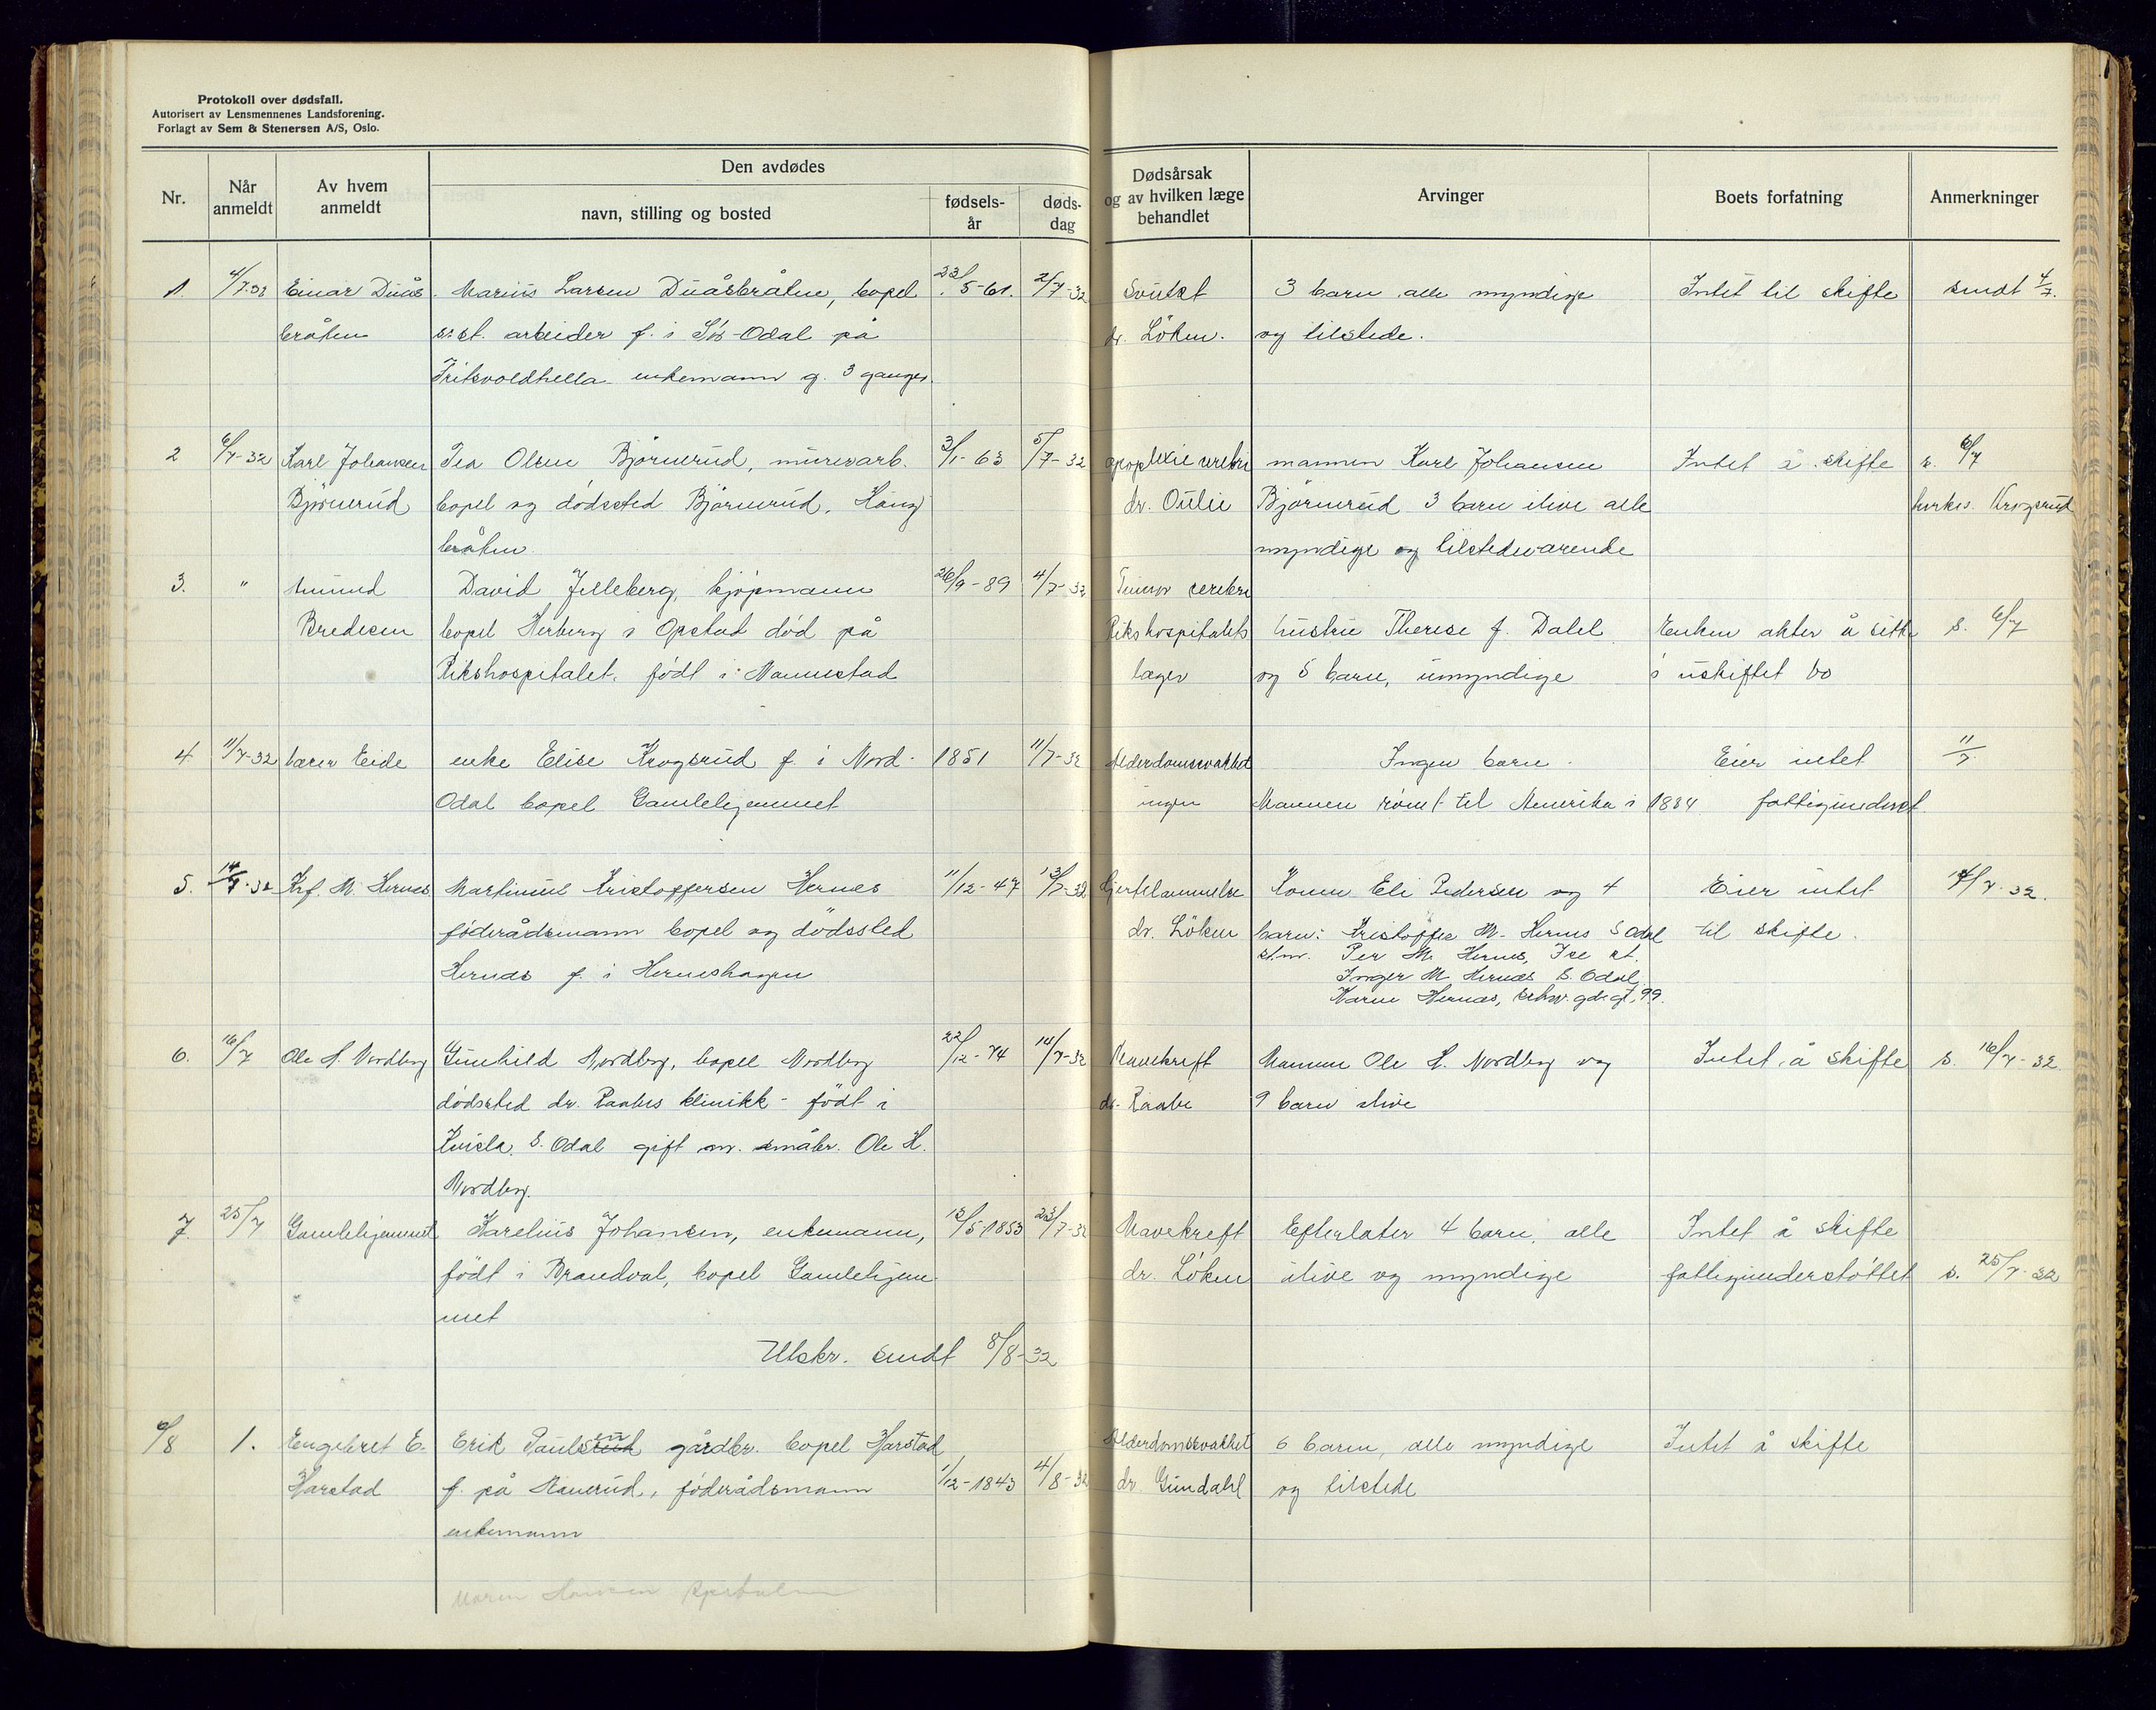 Protokoll over dødsfall.
Autorisert av Lensmennenes Landsforening.
Forlagt av Sem & Stenersen A/S, Oslo.
Nr.
Når anmeldt
Av hvem anmeldt
Den avdødes
navn, stilling og bosted
fødselsår
dødsdag
Dødsårsak og av hvilken læge behandlet
Arvinger
Boets forfatning
Anmerkninger
1. 4/7-32 Einar Duås- Marius Larsen Duåsbråten, bopel 23/5-61. 2/7-32 Svulst 3 barn alle myndige Intet til skifte sendt 4/7.
bråten s.st. arbeider f. i Sør-Odal på dr. Löken. og tilstede.
enkemann g. 3 ganger.
2 6/7-32 Karl Johansen Tea Olsen Björnerud, murerarb. 3/1-63 5/7-32 apoplexie cerebri mannen Karl Johansen Intet å skifte s. 6/7
Björnerud bopel og dödssted Björnerud, Haug- dr. Oulie Björnerud 3 barn ilive alle Krogsrud
bråten myndige og tilstedevarende
3. " Amund David Jelleberg, kjöpmann 26/9-89 4/7-32 Tumor cerebri
Bredesen bopel Herberg i Opstad död på Rikshospitalets hustru Therese f. Dalel Enken akter å sitte s. 6/7
Rikshospitalet. födt i Nannestad læger og 5 barn, umyndige i uskiftet bo
4 11/7-32 lærer Eide enke Elise Krogsrud f. i Nord- 1851 11/7-32 Alderdomssvakhet Ingen barn. Eier intet 11/7
Odal bopel Gamlehjemmet ingen Mannen römt til Amerika i 1884 fattigunderst.
5. 14/7-32 Krf. M. Hernes Martinus Kristoffersen Hernes 11/12-47 13/7-32 Hjertelammelse Konen Eli Pedersen og 4 Eier intet 14/7-32.
föderådsmann bopel og dödssted dr. Löken barn: Kristoffer M. Hernes S Odal til skifte.
Hernes f. i Herneshagen Per M. Hernes,
Inger M Hernes S. Odal
Karen Hernes, 99.
6. 16/7 Ole H. Nordberg Gunhild Nordberg, bopel Nordberg 22/12-74 14/7-32 Mavekreft Mannen Ole H. Nordberg og Intet å skifte s. 16/7-32
dödssted dr. Raabes klinikk - födt i dr. Raabe 9 barn ilive
S. Odal gift m. småbr. Ole H.
Nordberg.
7 25/7 Gamlehjemmet Karelius Johansen, enkemann, 13/5 1853 23/7-32 Mavekreft Efterlater 4 barn, alle Intet å skifte
födt i Brandval, bopel Gamlehjem- dr. Löken ilive og myndige fattigunderstöttet s. 25/7-32
met
Utskr. sendt 8/8-32
6/8 1. Engebret E. Erik Paulsen gårdbr. bopel Harstad Alderdomssvakhet 6 barn, alle myndige Intet å skifte
Harstad f. på föderådsmann 1/12-1843 4/8-32 dr Gundahl og tilstede
enkemann
Maren Hansen